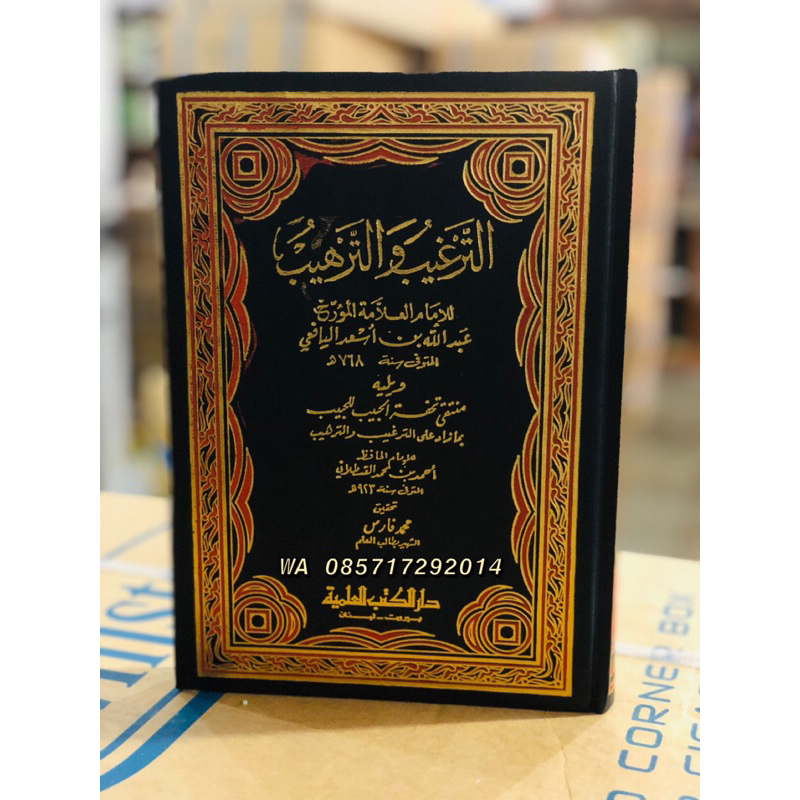 الترغيب والترهيب
للإمام العلامة المؤرخ
عبد الله بن أسعد اليافعي
المتوفى سنة ٧٦٨هـ
ويليه
منتقى تحفة الحبيب للحبيب
بما زاد على الترغيب والترهيب
للإمام الحافظ
أحمد بن محمد القسطلاني
المتوفى سنة ٩٢٣هـ
تحقيق
محمد فارس
الشهير بطالب العلم
WA 085717292014
دار الكتب العلمية
بيروت - لبنان
CORNER BOX